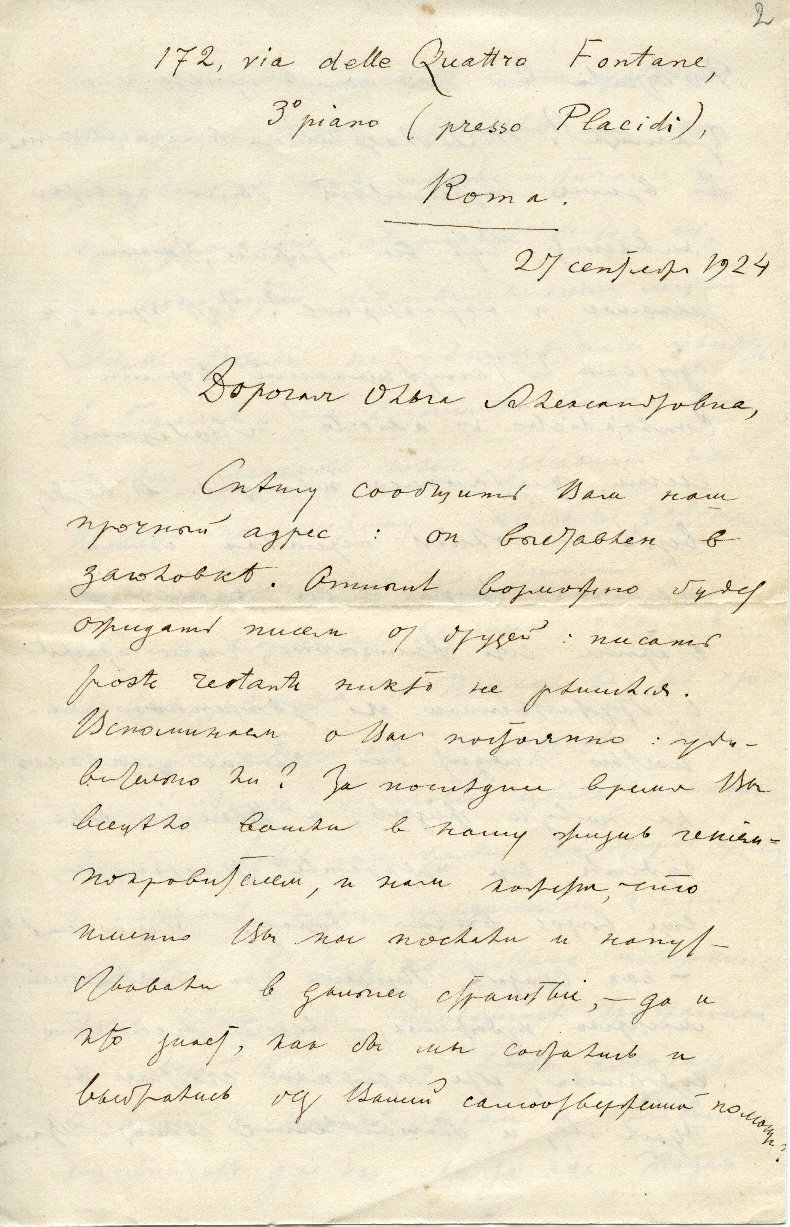 2
172, via delle Quattro Fontane,
3° piano (presso Placidi),
Roma.
27 сентября 1924
Дорогая Ольга Александровна,
Спѣшу сообщить Вам наш
прочный адрес: он выставлен в
заголовкѣ. Отнынѣ возможно будет
ожидать писем от друзей: писать
poste restante никто не рѣшился.
Вспоминаем о Вас постоянно: уди-
вительно ли? За послѣднее время Вы
всецѣло вошли в нашу жизнь геніем-
покровителем, и нам кажется, что
именно Вы нас послали и напут-
ствовали в дальнее странствіе, – да и
кто знает, как бы мы собрались и
выбрались без Вашей самоотверженной помощи?